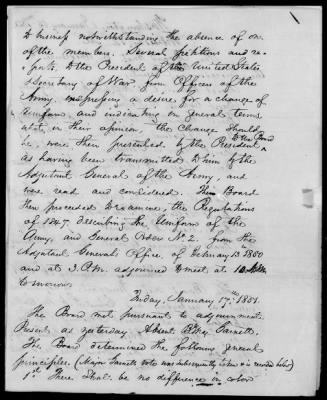 business notwithstanding the absence of one
of the members. Several petitions and re-
ports to the President of the United States
& Secretary of War from Officers of the
Army, expressing a desire for a change of
Uniform, and indicating in general terms
what, in their opinion, the change should
be, were then presented to the Board by the President
as having been transmitted to him by the
Adjutant General of the Army, and
were read and considered. The Board
then proceeded to examine, the Regulations
of 1847, describing the Uniform of the
Army, and General Orders No 2, from the
Adjutant General's Office, of February 13th 1850
and at 3. P.M. adjourned to meet at 10
tomorrow
Friday, January 17th 1851.
The Board met pursuant to adjournment.
Present as yesterday. Absent Garnett.
The Board determined the following general
principles. (Major Garnett's vote was subsequently taken & is recorded below)
1st There shall be no difference in color